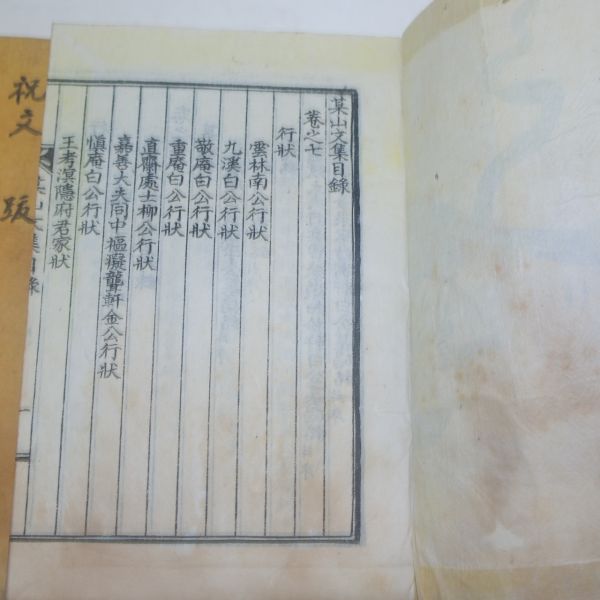 某山文集目錄
卷之七
行狀
雲林南公行狀
九溪白公行狀
敬庵白公行狀
重庵白公行狀
直齋處士柳公行狀
嘉善大夫同中樞癡聾軒金公行狀
愼庵白公行狀
王考溟隱府君家狀
某山文集目錄
祝文
跋